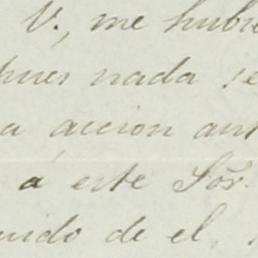 V., me hubie
pues nada se
a accion ant
á este Sõr.
ndo de el.